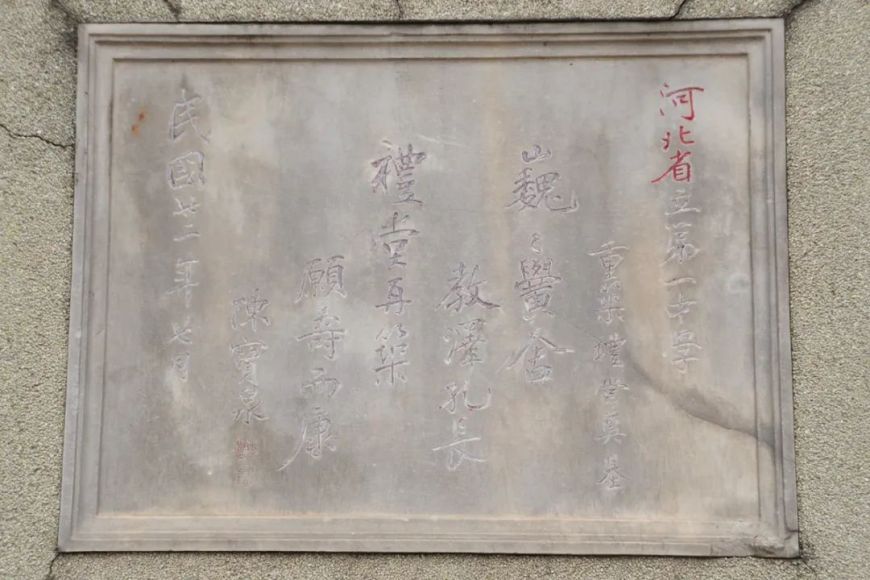 河北省立第一中学
重築禮堂奠基
巍〻黌舍
教澤孔長
禮堂再築
願壽而康
陳寶泉
民國廿二年七月